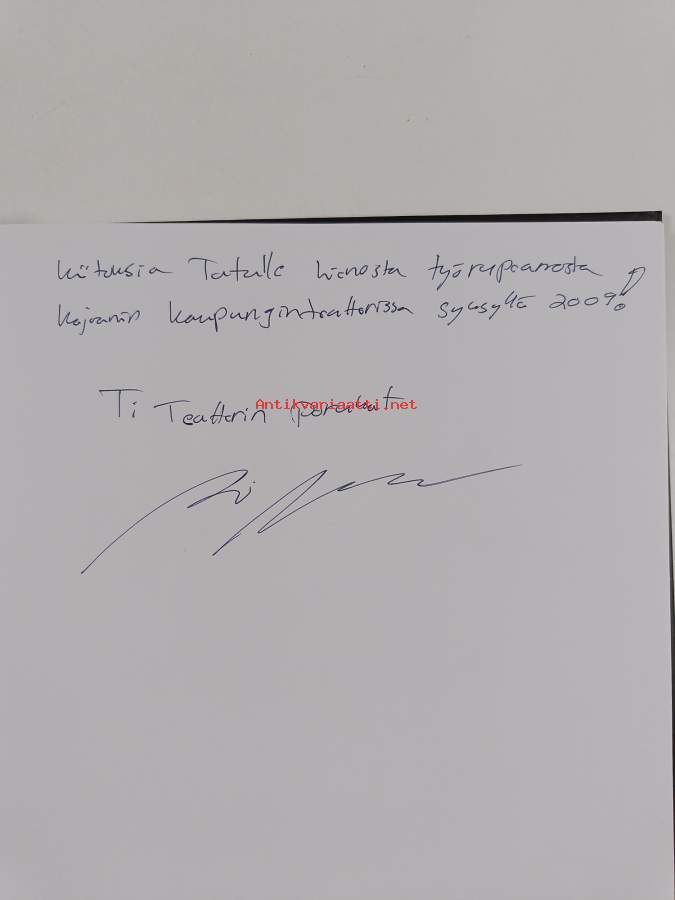 Kiitoksia Tatulle hienosta työrupeamasta
Kajaanin kaupunginteatterissa syksyllä 2009!
Ti Teatterin porukat
Antikvariaatti.net